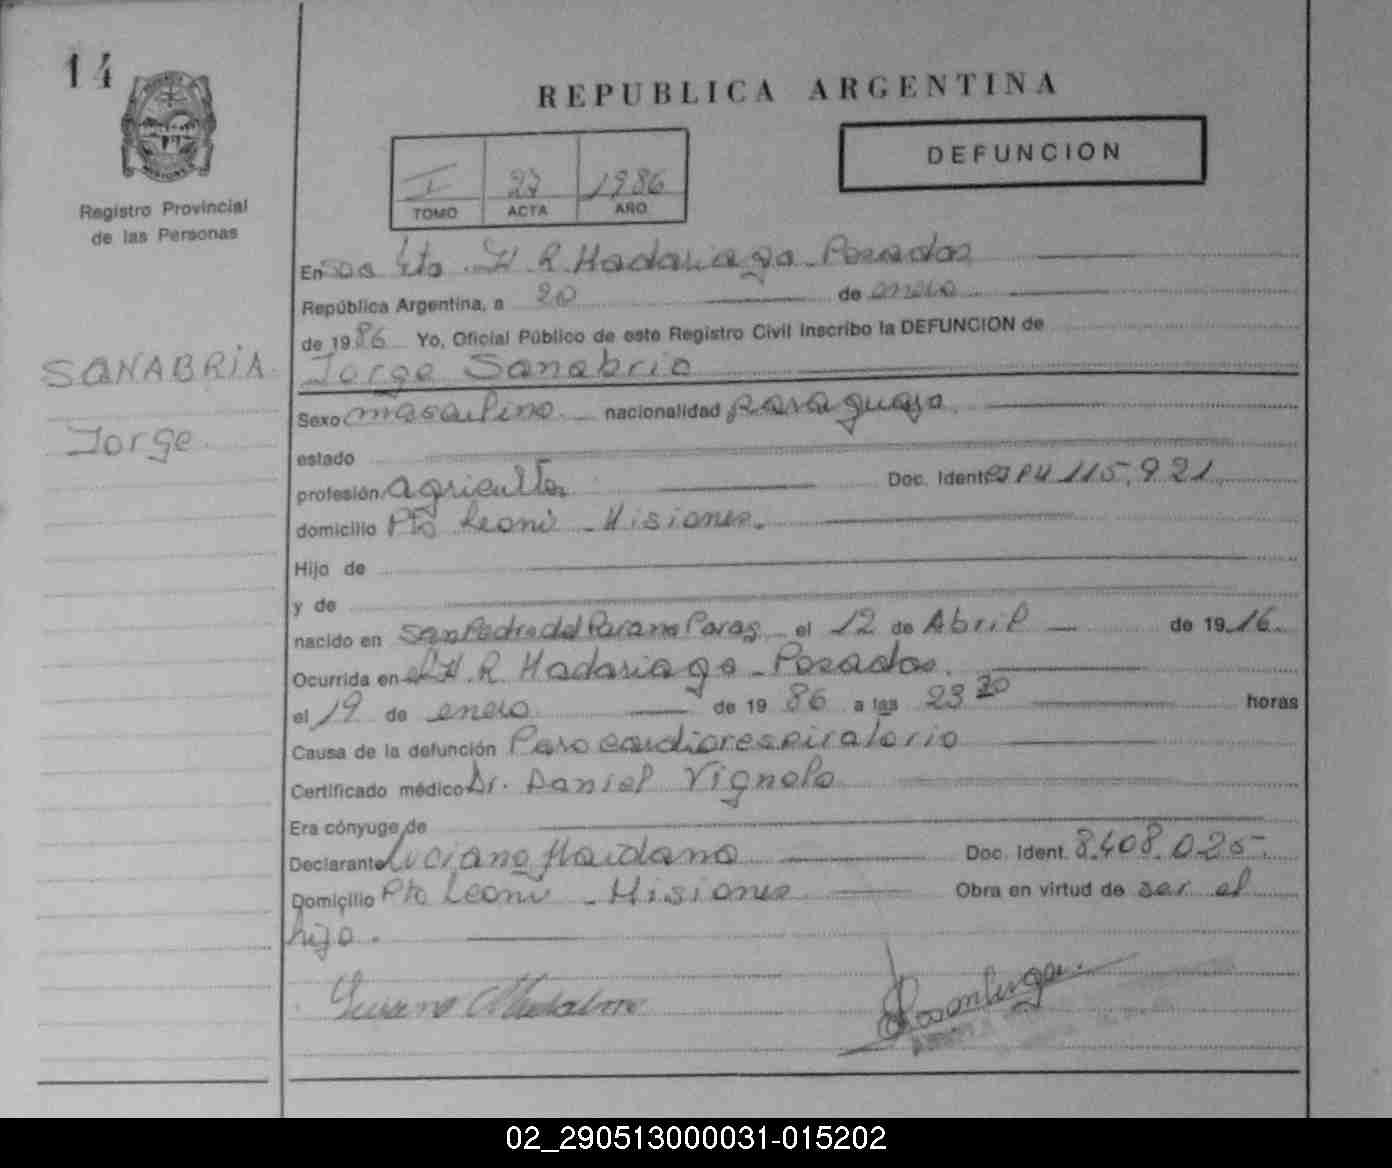 14
REPUBLICA ARGENTINA
DEFUNCION
I 27 1986
TOMO ACTA AÑO
Registro Provincial
de las Personas
SANABRIA
Jorge
En 5ta H. R. Madariaga - Posadas
República Argentina, a 20 de enero
de 1986 Yo, Oficial Público de este Registro Civil inscribo la DEFUNCION de
Jorge Sanabria
Sexo masculino nacionalidad paraguaya
estado
profesión agricultor Doc. Ident. 115.921
domicilio Pto Leoni - Misiones.
Hijo de
y de
nacido en San Pedro del Parana Parag. el 12 de Abril de 1916
Ocurrida en el H. R. Madariaga - Posadas.
el 19 de enero de 1986 a las 23 30 horas
Causa de la defunción Paro cardiorespiratorio
Certificado médico Dr. Daniel Vignolo
Era cónyuge de
Declarante Luciano Maidana Doc. Ident. 8.408.025
Domicilio Pto Leoni - Misiones Obra en virtud de ser el
hijo.
02_290513000031-015202